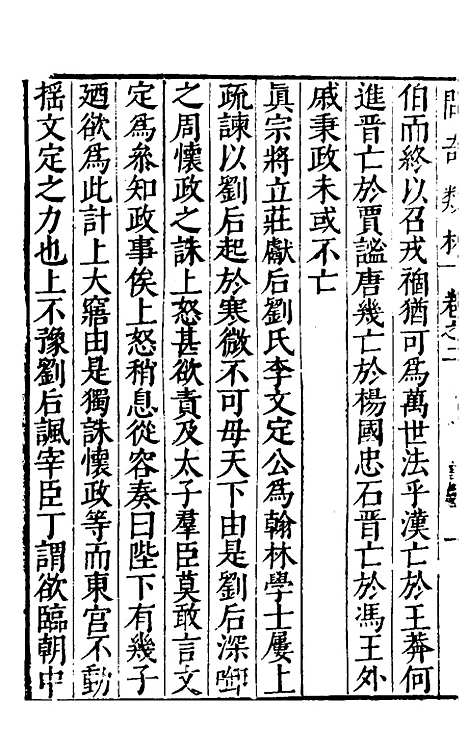 問奇類林 卷之二
伯而終以召戎禍猶可為萬世法乎漢亡於王莽何
進晉亡於賈謐唐幾亡於楊國忠石晉亡於馮王外
戚秉政未或不亡
眞宗將立莊獻后劉氏李文定公為翰林學士屢上
疏諫以劉后起於寒微不可母天下由是劉后深啣
之周懷政之誅上怒甚欲責及太子羣臣莫敢言文
定為叅知政事俟上怒稍息從容奏曰陛下有幾子
廼欲為此計上大寤由是獨誅懷政等而東宮不動
揺文定之力也上不豫劉后諷宰臣丁謂欲臨朝中